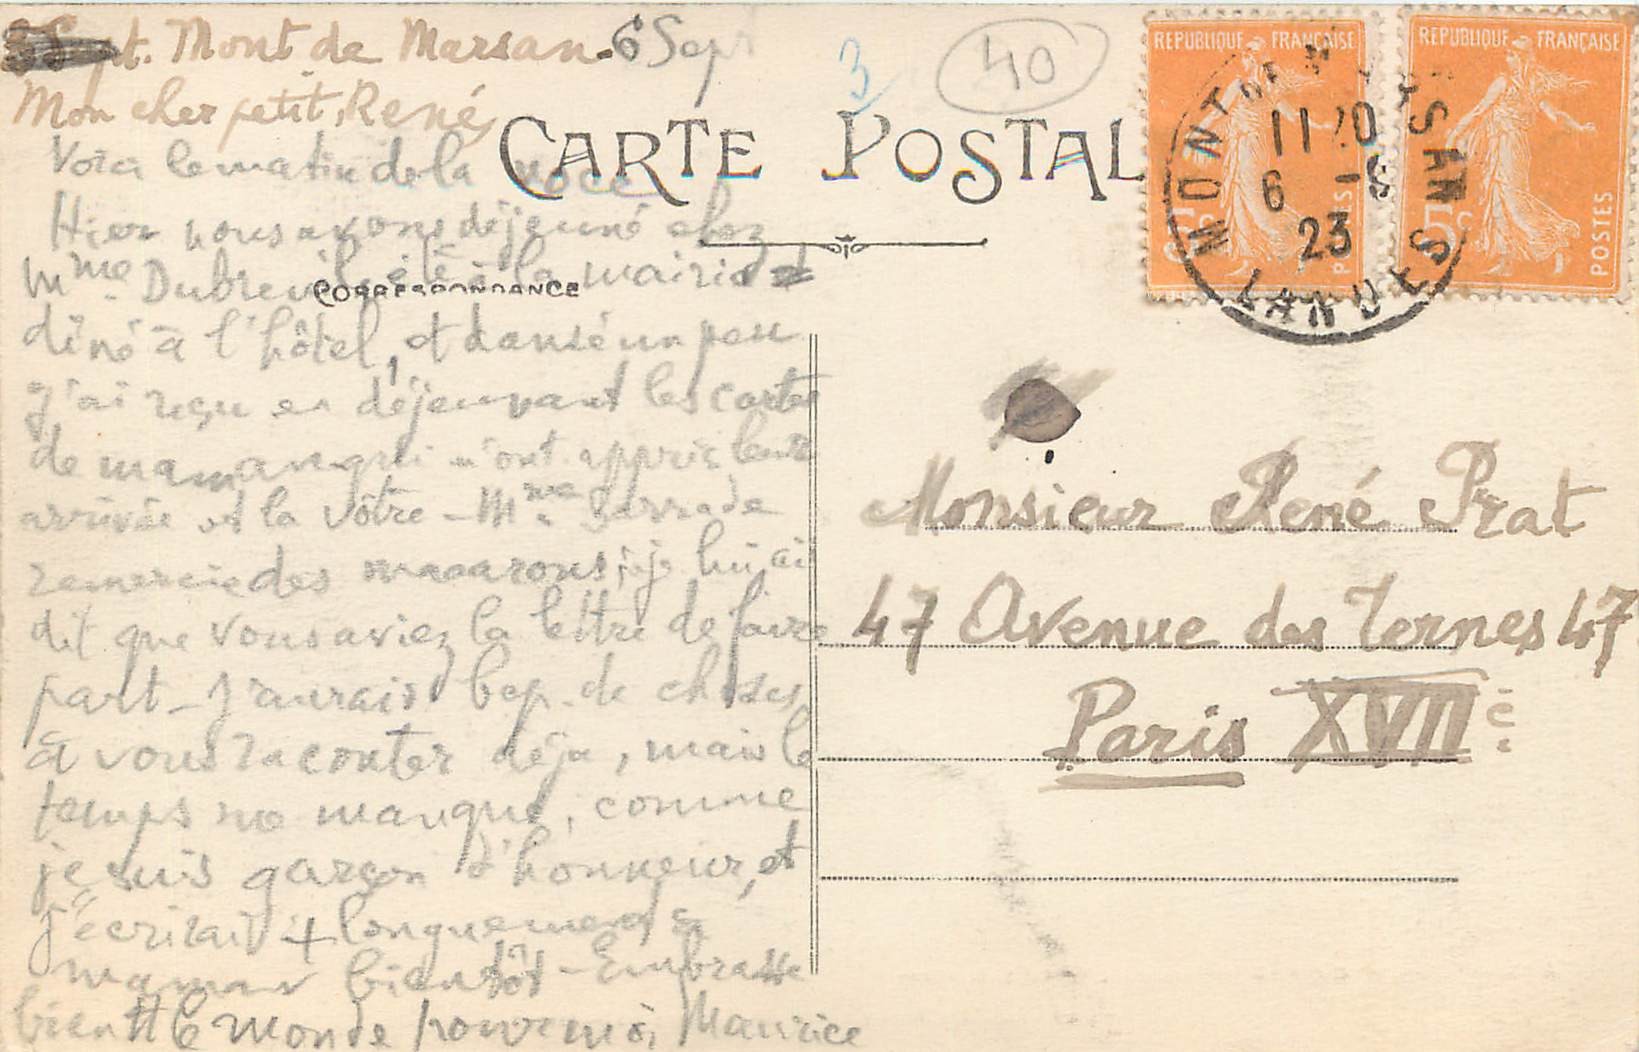 Mont de Marsan. 6 Sept
Mon cher petit René,
Voici le matin de la noce
Hier nous avons déjeuné chez
Mme Dubreuil, été à la mairie et
dîné à l'hôtel, et dansé un peu
J'ai reçu en déjeunant les cartes
de maman qui m'ont appris leur
arrivée et la vôtre - Mme
remercie des macarons ; je lui ai
dit que vous aviez la lettre de faire
part - J'aurais bcp. de choses
à vous raconter déjà, mais le
temps me manque, comme
je suis garçon d'honneur, et
j'écrirai + longuement à
maman bientôt - Embrasse
bien tt le monde pour moi, Maurice
3
40
CARTE POSTAL
CORRESPONDANCE
REPUBLIQUE FRANÇAISE
POSTES
REPUBLIQUE FRANÇAISE
POSTES
MONT DE MARSAN
6 -9
23
LANDES
Monsieur René Prat
47 Avenue des Ternes 47
Paris XVIIe